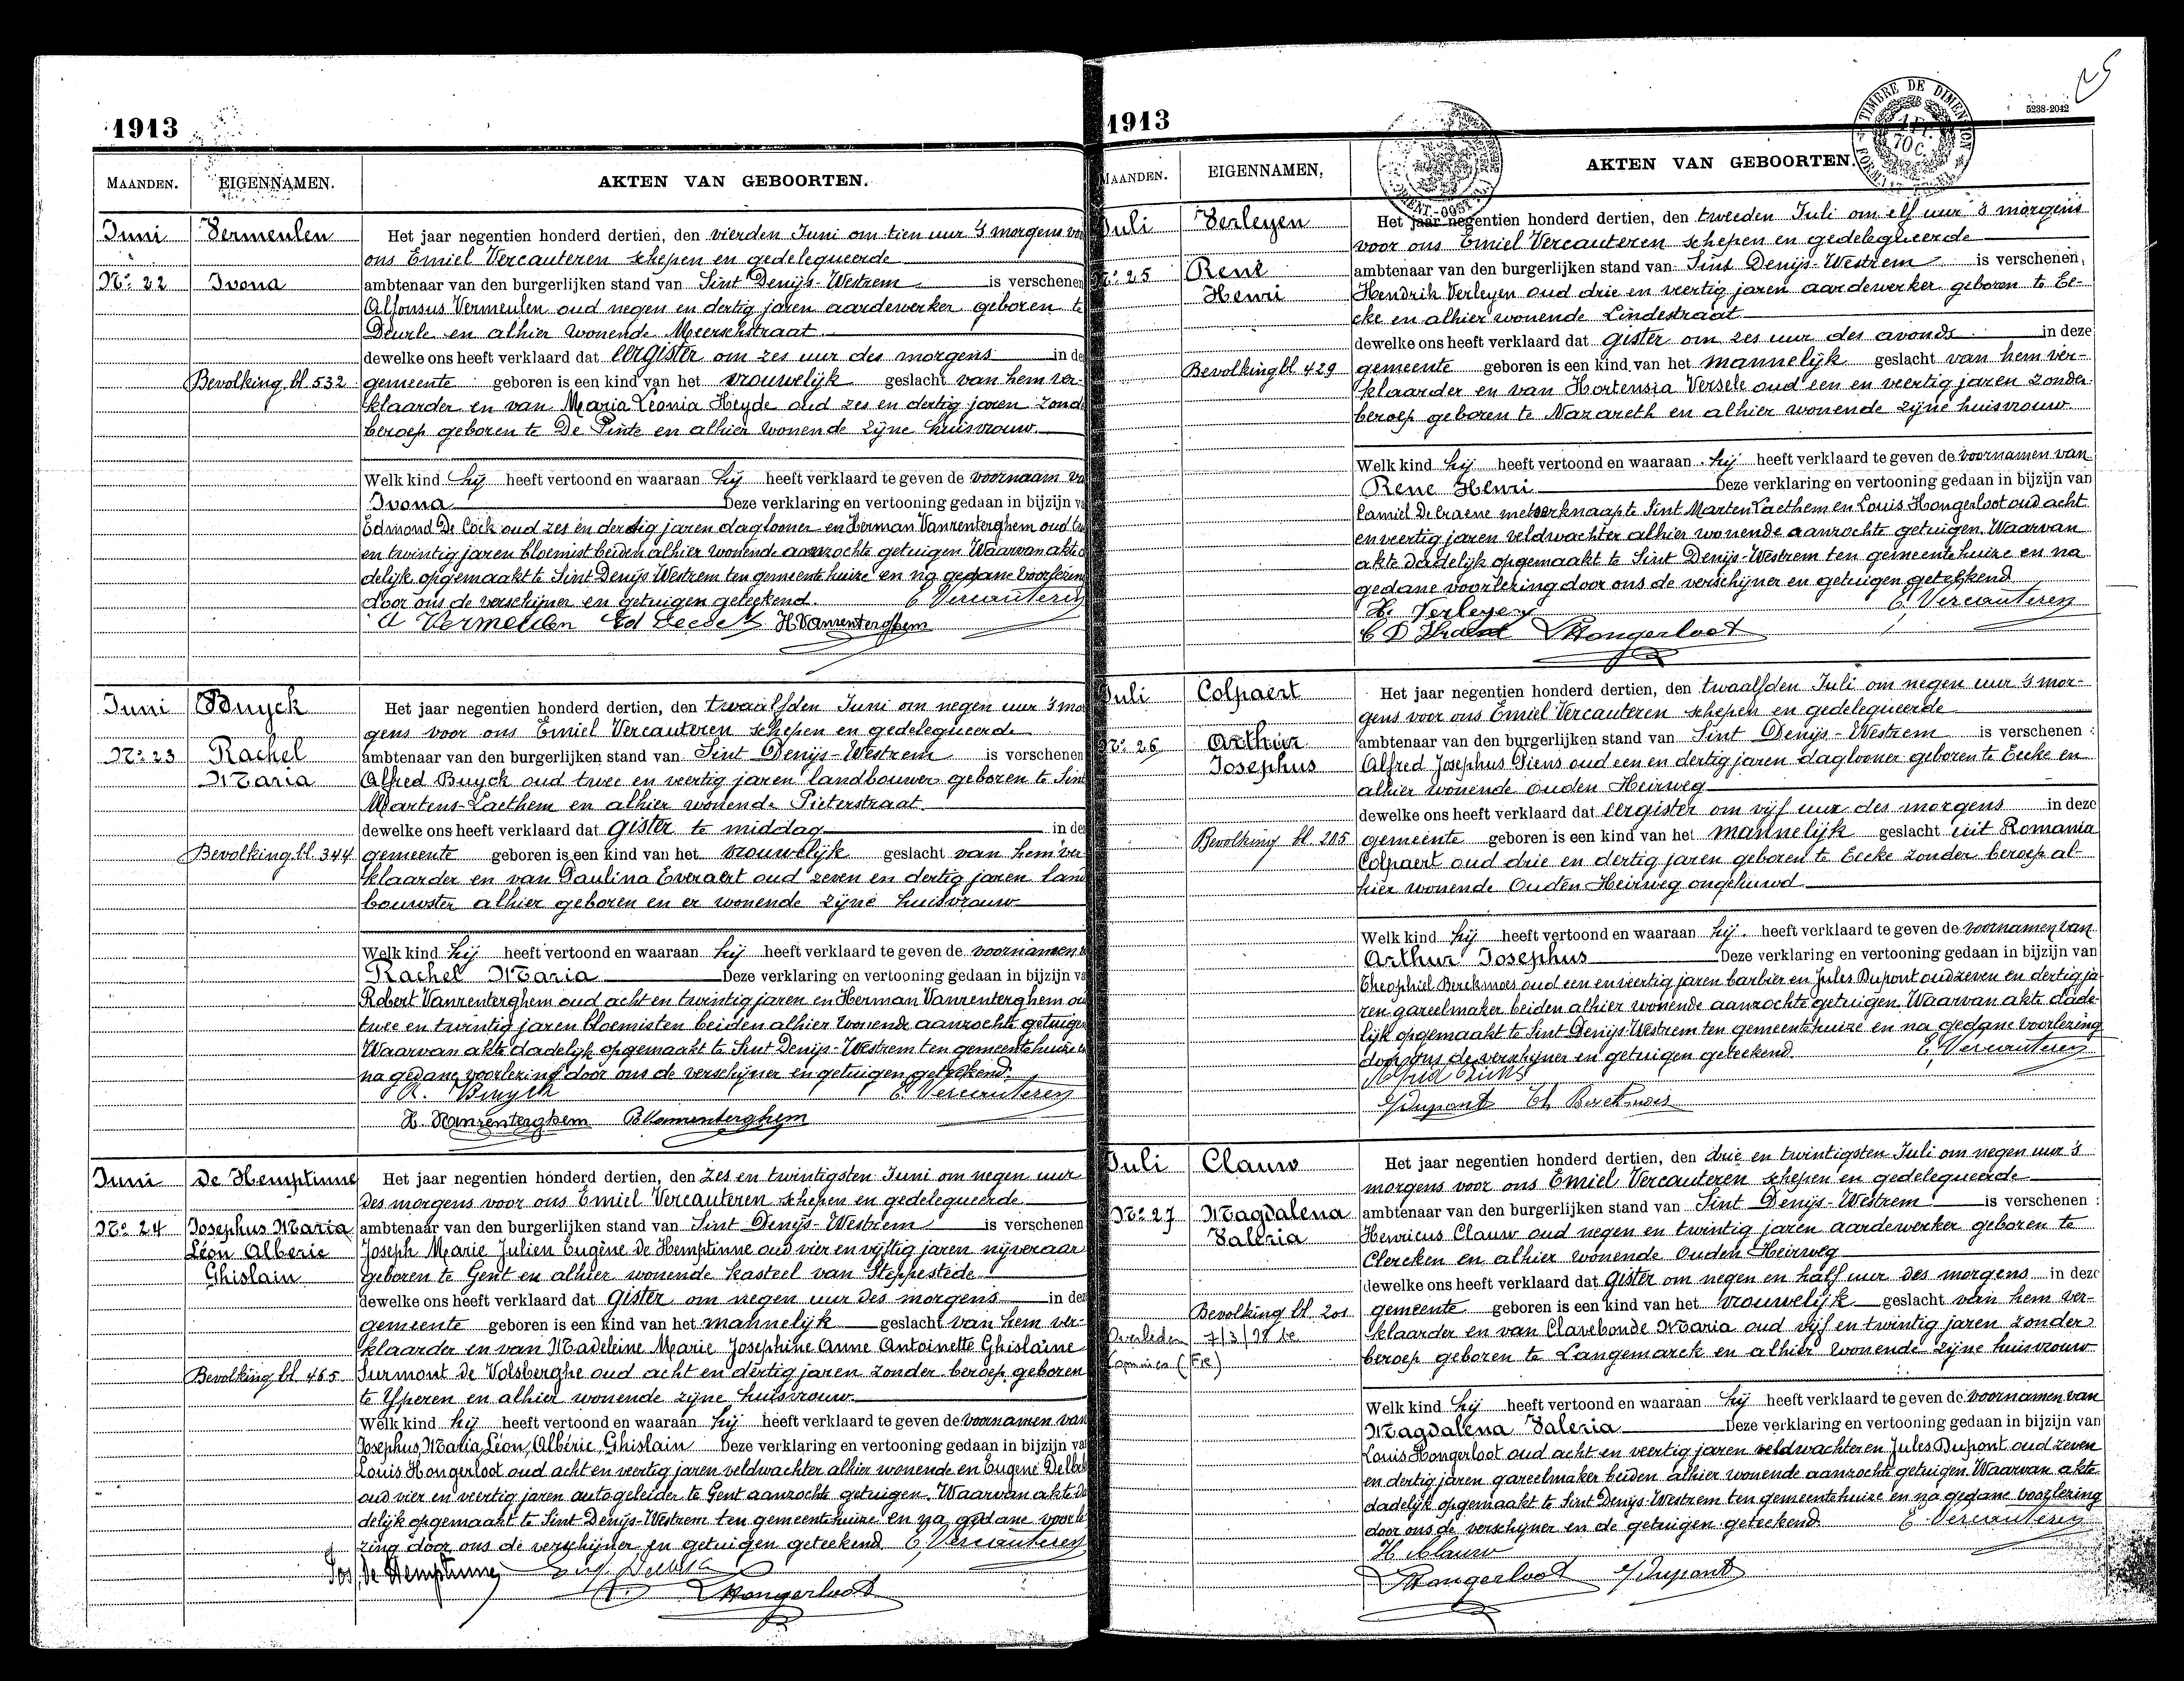 1913
MAANDEN. EIGENNAMEN. AKTEN VAN GEBOORTEN.
Juni Vermeulen Het jaar negentien honderd dertien, den vierden Juni om tien uur 's morgens voor
ons Emiel Vercauteren schepen en gedelegueerde
No. 22 Ivona ambtenaar van den burgerlijken stand van Sint Denijs-Westrem is verschenen
Alfonsus Vermeulen oud negen en dertig jaren aardewerker geboren te
Deurle en alhier wonende Meerschstraat
dewelke ons heeft verklaard dat eergister om zes uur des morgens in de
Bevolking bl. 532 gemeente geboren is een kind van het vrouwelijk geslacht van hem ver-
klaarder en van Maria Leonia Heyde oud zes en dertig jaren zond
beroep geboren te De Pinte en alhier wonende zijne huisvrouw
Welk kind hij heeft vertoond en waaraan hij heeft verklaard te geven de voornaam va
Ivona Deze verklaring en vertooning gedaan in bijzijn va
Edmond De Cock oud zes en dertig jaren daglooner en Herman Vanrenterghem oud
en twintig jaren bloemist beiden alhier wonende aanzochte getuigen. Waarvan akte
delijk opgemaakt te Sint Denijs Westrem ten gemeentehuize en na gedane voorlezing
door ons de verschijner en getuigen geteekend. E. Vercauteren
A Vermeulen Ed Decock H. Vanrenterghem
Juni Buyck Het jaar negentien honderd dertien, den twaalfden Juni om negen uur 's mo
gens voor ons Emiel Vercauteren schepen en gedelegueerde
No. 23 Rachel ambtenaar van den burgerlijken stand van Sint Denijs-Westrem is verschenen
Maria Alfred Buyck oud twee en veertig jaren landbouwer geboren te Sint
Martens-Laethem en alhier wonende Pieterstraat
dewelke ons heeft verklaard dat gister te middag in de
Bevolking bl. 344 gemeente geboren is een kind van het vrouwelijk geslacht van hem ver
klaarder en van Paulina Everaert oud zeven en dertig jaren land
bouwster alhier geboren en er wonende zijne huisvrouw
Welk kind hij heeft vertoond en waaraan hij heeft verklaard te geven de voornamen
Rachel Maria Deze verklaring en vertooning gedaan in bijzijn va
Robert Vanrenterghem oud acht en twintig jaren en Herman Vanrenterghem ou
twee en twintig jaren bloemisten beiden alhier wonende aanzochte getuige
Waarvan akte dadelijk opgemaakt te Sint Denijs-Westrem ten gemeentehuize en
na gedane voorlezing door ons de verschijner en getuigen geteekend.
A. Buyck E. Vercauteren
H. Vanrenterghem R Vanrenterghem
Juni De Hemptinne Het jaar negentien honderd dertien, den zes en twintigsten Juni om negen uur
des morgens voor ons Emiel Vercauteren schepen en gedelegueerde
No. 24 Josephus Maria ambtenaar van den burgerlijken stand van Sint Denijs-Westrem is verschenen
Léon Alberic Joseph Marie Julien Eugène de Hemptinne oud vier en vijftig jaren nijveraar
Ghislain geboren te Gent en alhier wonende kasteel van Steppestede
dewelke ons heeft verklaard dat gister om negen uur des morgens in de
gemeente geboren is een kind van het mannelijk geslacht van hem ver-
klaarder en van Madeleine Marie Josephine Anne Antoinette Ghislaine
Bevolking bl 465 Surmont de Volsberghe oud acht en dertig jaren zonder beroep geboren
te Yperen en alhier wonende zijne huisvrouw
Welk kind hij heeft vertoond en waaraan hij heeft verklaard te geven de voornamen van
Josephus, Maria, Léon, Albéric, Ghislain Deze verklaring en vertooning gedaan in bijzijn va
Louis Hongerloot oud acht en veertig jaren veldwachter alhier wonende en Eugene
oud vier en veertig jaren autogeleider te Gent aanzochte getuigen. Waarvan akte da
delijk opgemaakt te Sint Denijs-Westrem ten gemeentehuize en na gedane voorle
zing door ons de verschijner en getuigen geteekend E. Vercauteren
Jos. de Hemptinne
L Hongerloot
1913
5238-2042
TIMBRE DE DIMENSION
MAANDEN. EIGENNAMEN. AKTEN VAN GEBOORTEN.
Juli Verleyen Het jaar negentien honderd dertien, den tweeden Juli om elf uur 's morgens
voor ons Emiel Vercauteren schepen en gedelegueerde
No. 25 René ambtenaar van den burgerlijken stand van Sint Denijs-Westrem is verschenen,
Henri Hendrik Verleyen oud drie en veertig jaren aardewerker geboren te Ee-
cke en alhier wonende Lindestraat
dewelke ons heeft verklaard dat gister om zes uur des avonds in deze
Bevolking bl 429 gemeente geboren is een kind van het mannelijk geslacht van hem ver-
klaarder en van Hortensia Versele oud een en veertig jaren zonder
beroep geboren te Nazareth en alhier wonende zijne huisvrouw
Welk kind hij heeft vertoond en waaraan hij heeft verklaard te geven de voornamen van
René Henri Deze verklaring en vertooning gedaan in bijzijn van
Camiel De metserknaap te Sint Marten Laethem en Louis Hongerloot oud acht
en veertig jaren veldwachter alhier wonende aanzochte getuigen. Waarvan
akte dadelijk opgemaakt te Sint Denijs-Westrem ten gemeentehuize en na
gedane voorlezing door ons de verschijner en getuigen geteekend
H. Verleyen E. Vercauteren
L Hongerloot
Juli Colpaert Het jaar negentien honderd dertien, den twaalfden Juli om negen uur 's mor-
gens voor ons Emiel Vercauteren schepen en gedelegueerde
No. 26 Arthur ambtenaar van den burgerlijken stand van Sint Denijs-Westrem is verschenen :
Josephus Alfred Josephus Diens oud een en dertig jaren daglooner geboren te Eecke en
alhier wonende Ouden Heirweg
dewelke ons heeft verklaard dat eergister om vijf uur des morgens in deze
Bevolking bl. 205 gemeente geboren is een kind van het mannelijk geslacht uit Romania
Colpaert oud drie en dertig jaren geboren te Eecke zonder beroep al-
hier wonende Ouden Heirweg ongehuwd
Welk kind hij heeft vertoond en waaraan hij heeft verklaard te geven de voornamen van
Arthur Josephus Deze verklaring en vertooning gedaan in bijzijn van
Theophiel Berckmoes oud een en veertig jaren barbier en Jules Dupont oud zeven en dertig ja
ren gareelmaker beiden alhier wonende aanzochte getuigen. Waarvan akte dade-
lijk opgemaakt te Sint Denijs-Westrem ten gemeentehuize en na gedane voorlezing
door ons de verschijner en getuigen geteekend. E. Vercauteren
J Dupont Th Berckmoes
Juli Clauw Het jaar negentien honderd dertien, den drie en twintigsten Juli om negen uur 's
morgens voor ons Emiel Vercauteren schepen en gedelegueerde
No. 27 Magdalena ambtenaar van den burgerlijken stand van Sint Denijs-Westrem is verschenen :
Valeria Henricus Clauw oud negen en twintig jaren aardewerker geboren te
Clercken en alhier wonende Ouden Heirweg
dewelke ons heeft verklaard dat gister om negen en half uur des morgens in deze
Bevolking bl. 201 gemeente geboren is een kind van het vrouwelijk geslacht van hem ver-
Overleden klaarder en van Clarebonde Maria oud vijf en twintig jaren zonder
beroep geboren te Langemarck en alhier wonende zijne huisvrouw
Welk kind hij heeft vertoond en waaraan hij heeft verklaard te geven de voornamen van
Magdalena Valeria Deze verklaring en vertooning gedaan in bijzijn van
Louis Hongerloot oud acht en veertig jaren veldwachter en Jules Dupont oud zeven
en dertig jaren gareelmaker beiden alhier wonende aanzochte getuigen. Waarvan akte
dadelijk opgemaakt te Sint Denijs-Westrem ten gemeentehuize en na gedane voorlezing
door ons de verschijner en de getuigen geteekend E. Vercauteren
H. Clauw
L Hongerloot J Dupont